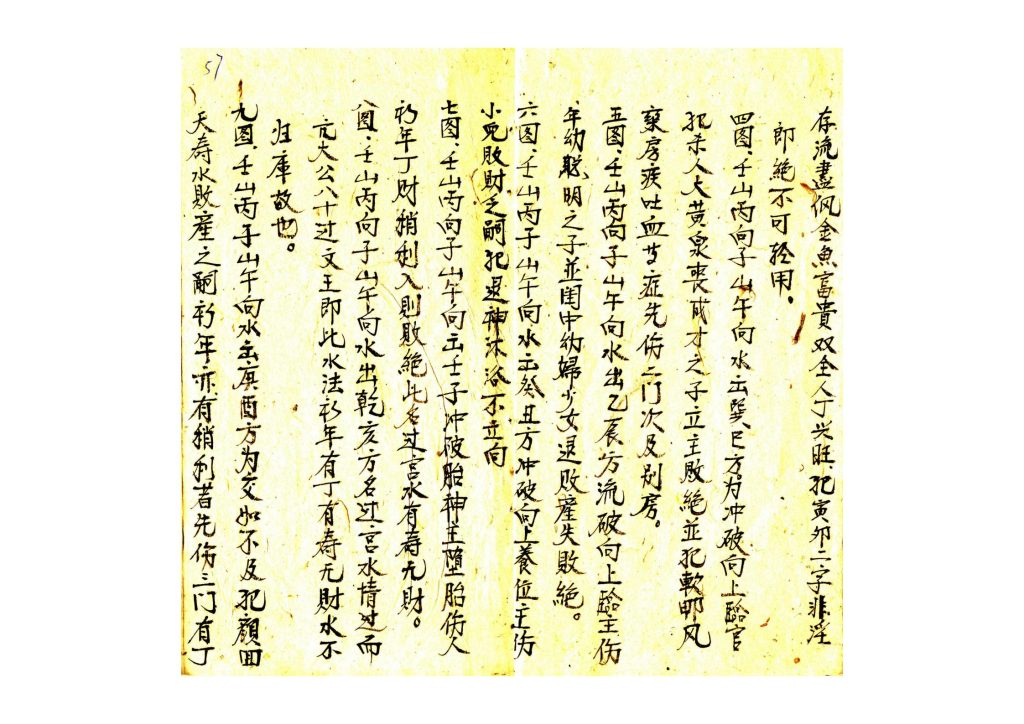 存流盡佩金魚富貴双全人丁兴旺犯寅卯二字非淫
即絕不可轻用。
四图、壬山丙向子山午向水出巽巳方为冲破向上臨官
犯杀人大黄泉丧成才之子立主敗絕並犯軟脚风
疾吐血等症先伤二门次及别房。
五图、壬山丙向子山午向水出乙辰方流破向上主伤
年幼聪明之子並闺中幼婦少女退敗產失敗絕。
六图、壬山丙子山午向水出癸丑方冲破向上養位主伤
小児敗財乏嗣犯退神沐浴不立向
七图、壬山丙向子山午向出壬子冲破胎神主墮胎伤人
初年丁财稍利入則敗絕此名过宫水有寿无財。
八图、壬山丙向子山午向水出乾亥方名过宫水情过而
亢太公八十过文王即此水法初年有丁有寿无財水不
归庫故也。
九图、壬山丙子山午向水出庚酉方为交如不及犯顏回
夭寿水敗產乏嗣初年亦有稍利者先伤三门有丁
57